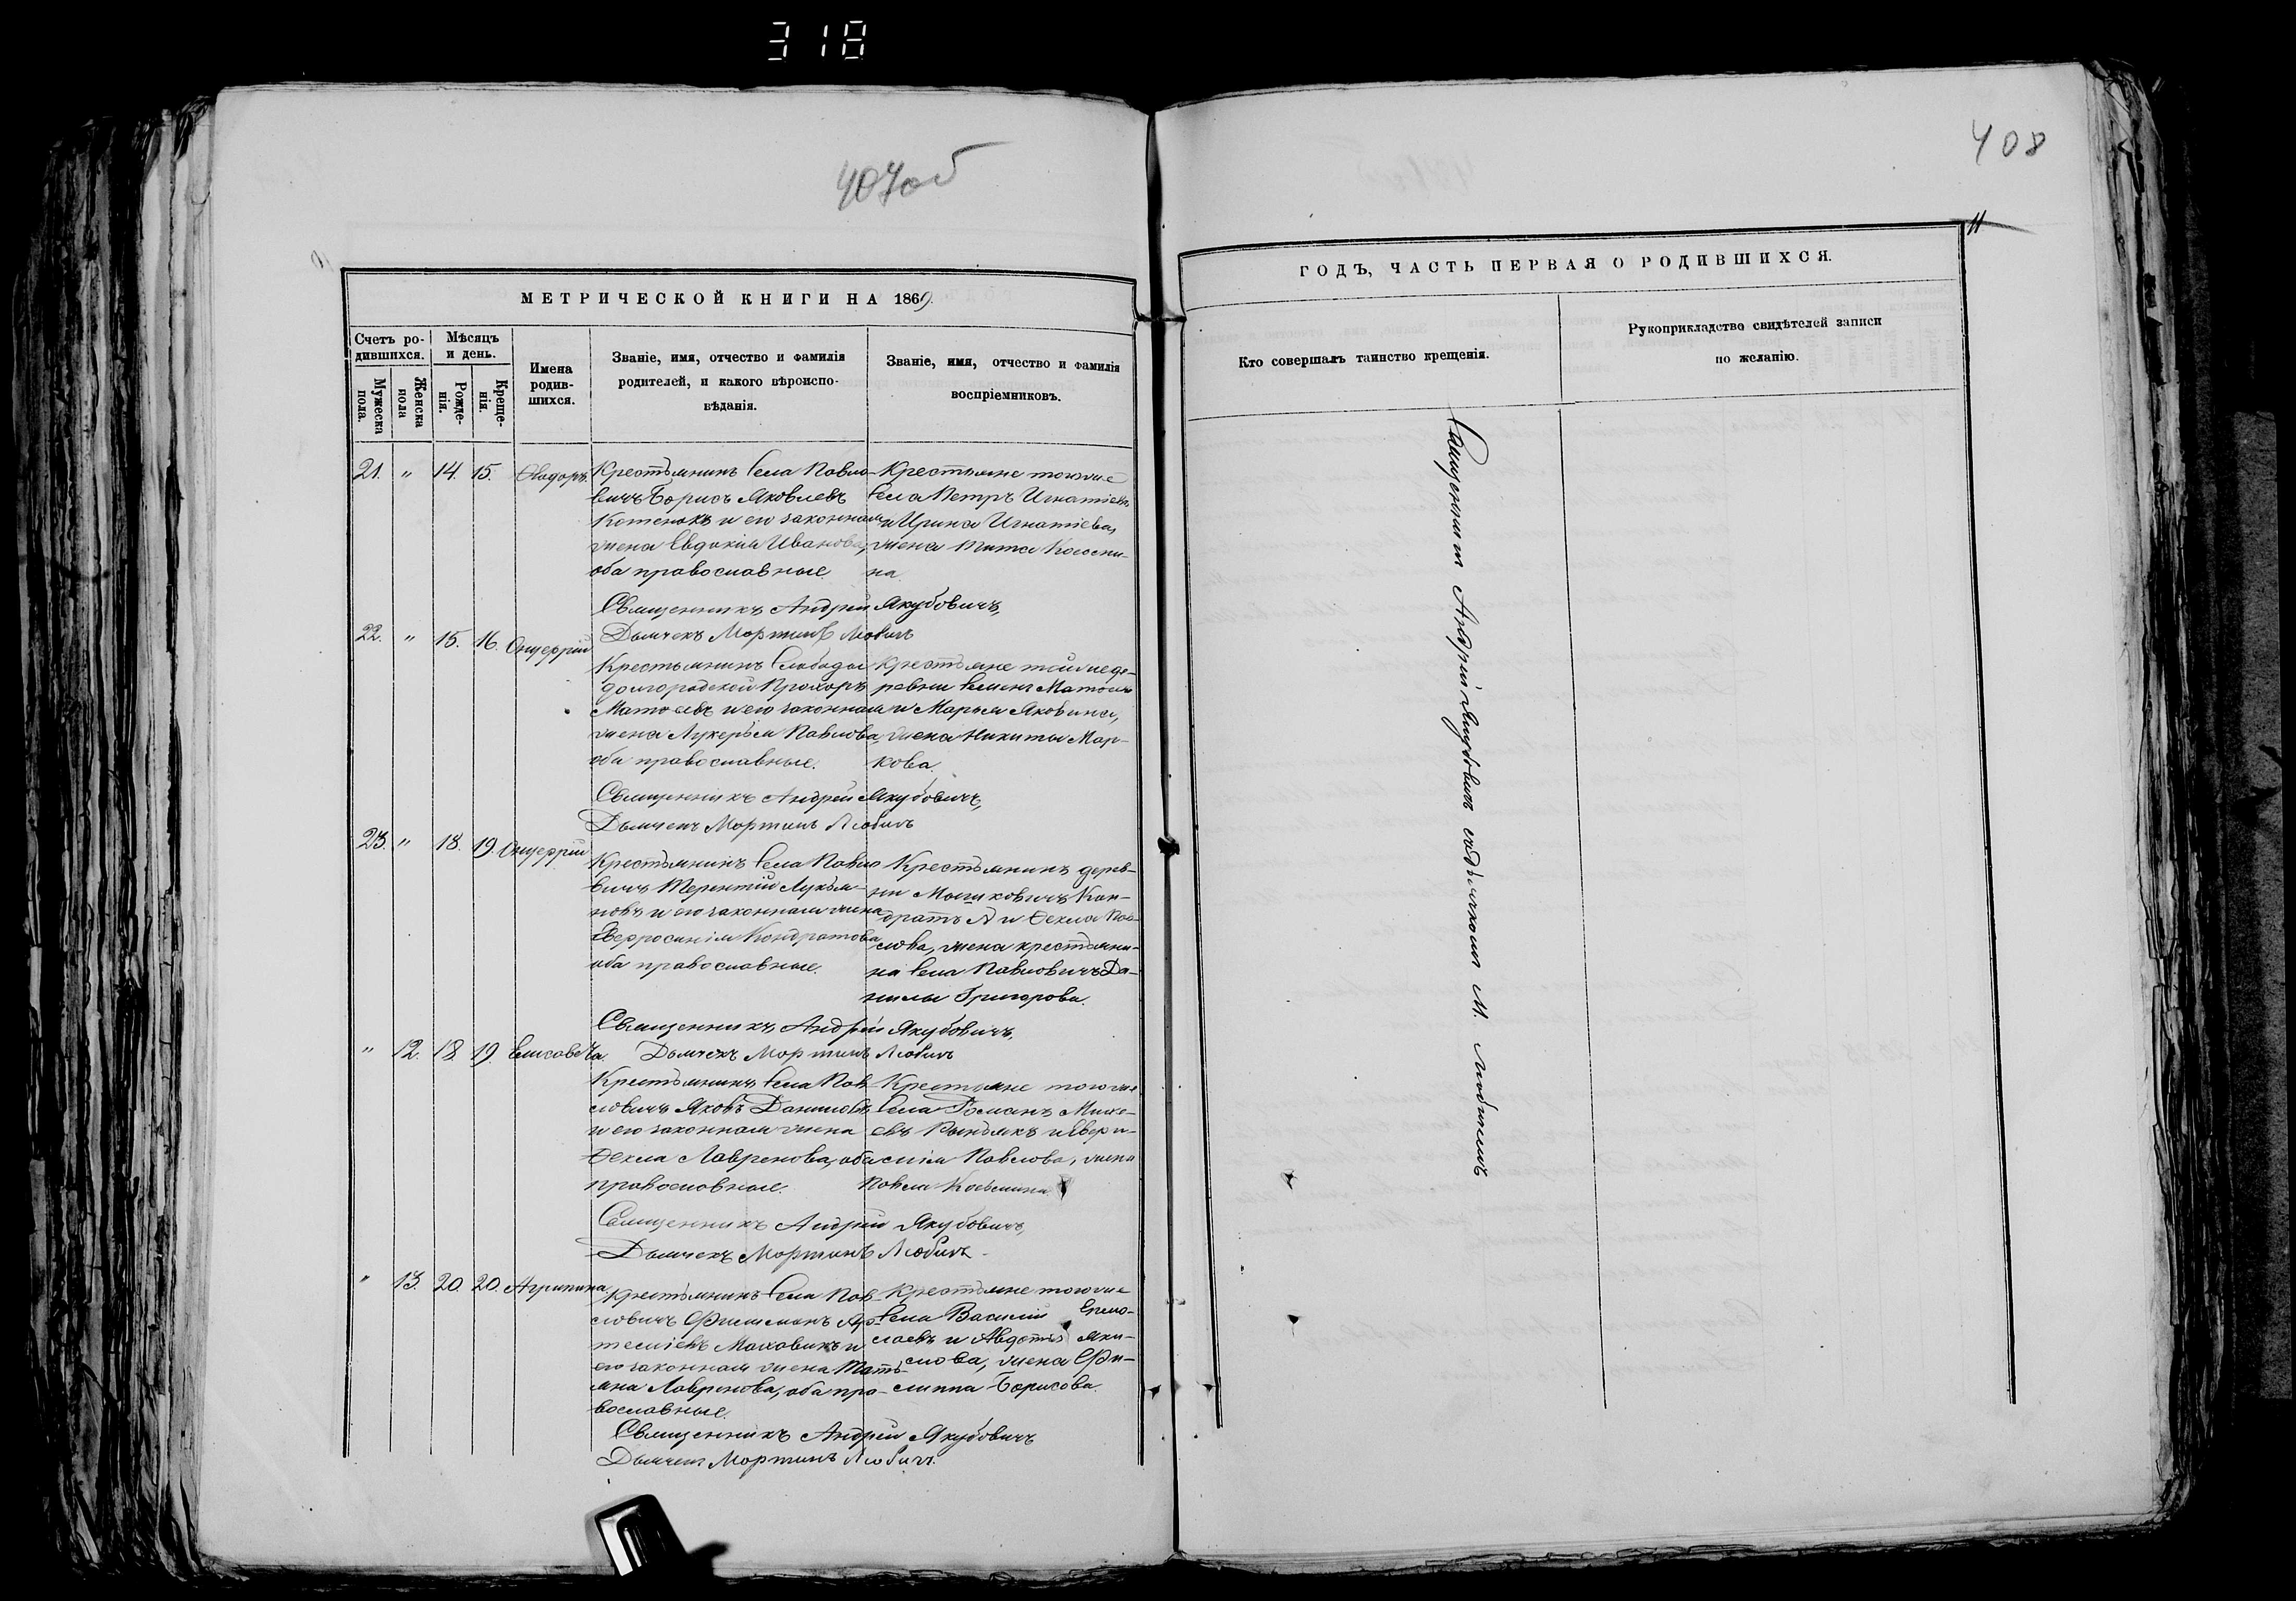 318
407об
408
11
МЕТРИЧЕСКОЙ КНИГИ НА 1869.
ГОДЪ, ЧАСТЬ ПЕРВАЯ О РОДИВШИХСЯ.
Счетъ ро-
дившихся.
Мужеска
пола.
Женска
пола
Мѣсяцъ
и день.
Рожде-
нія.
Креще-
нія.
Имена
родив-
шихся.
Званіе, имя, отчество и фамилія
родителей, и какого вѣроиспо-
вѣданія.
Званіе, имя, отчество и фамилія
воспріемниковъ.
Кто совершалъ таинство крещенія.
Рукоприкладство свидѣтелей записи
по желанію.
21. " 14. 15. Ѳеодоръ.
Крестьянинъ села Павло-
вичъ Борисъ Яковлевъ
Котенокъ и его законная
жена Евдокія Иванова,
оба православные
Крестьяне того же
села Петръ Игнатіевъ
и Ирина Игнатіева,
жена Тита
на.
Священникъ Андрей Якубовичъ,
Дьячекъ Мартинъ Любичъ
22. " 15. 16. Онуфрій
Крестьянинъ слободы
Прохоръ
и его законная
жена Лукерья Павлова,
оба православные.
Крестьяне той же де-
ревни Семенъ
и Марья Яковина,
жена Никиты Мар-
кова.
Священникъ Андрей Якубовичъ,
Дьячекъ Мартинъ Любичъ
23. " 18. 19. Онуфрій
Крестьянинъ села Павло
вичъ Терентій Лукья-
новъ и его законная жена
Евфросинія Кондратова
оба православные.
Крестьянинъ дерев-
ни Кон-
дратъ и Ѳекла Пав-
лова, жена крестьяни-
на села Павловичъ Да-
нилы Григорова.
Священникъ Андрей Якубовичъ,
Дьячекъ Мартинъ Любичъ
" 12. 18. 19. Елисавета.
Крестьянинъ села Пав
ловичъ Яковъ Даниловъ
и его законная жена
Ѳекла Лавренова, оба
православные.
Крестьяне того же
села Романъ Михе-
евъ и Евфро-
синія Павлова, жена
Павла Косьмина.
Священникъ Андрей Якубовичъ,
Дьячекъ Мартинъ Любичъ
" 13. 20. 20. Агрипина
Крестьянинъ села Пав-
ловичъ Филимонъ Ар-
теміевъ Маховикъ и
его законная жена Тать-
яна Лавренова, оба пра-
вославные.
Крестьяне того же
села Василій Ермо-
лаевъ и Авдотья Яки-
мова, жена Фи-
липпа Борисова.
Священникъ Андрей Якубовичъ
Дьячекъ Мартинъ Любичъ.
Священникъ Андрій Якубовичъ съ дьячкомъ М. Любичемъ